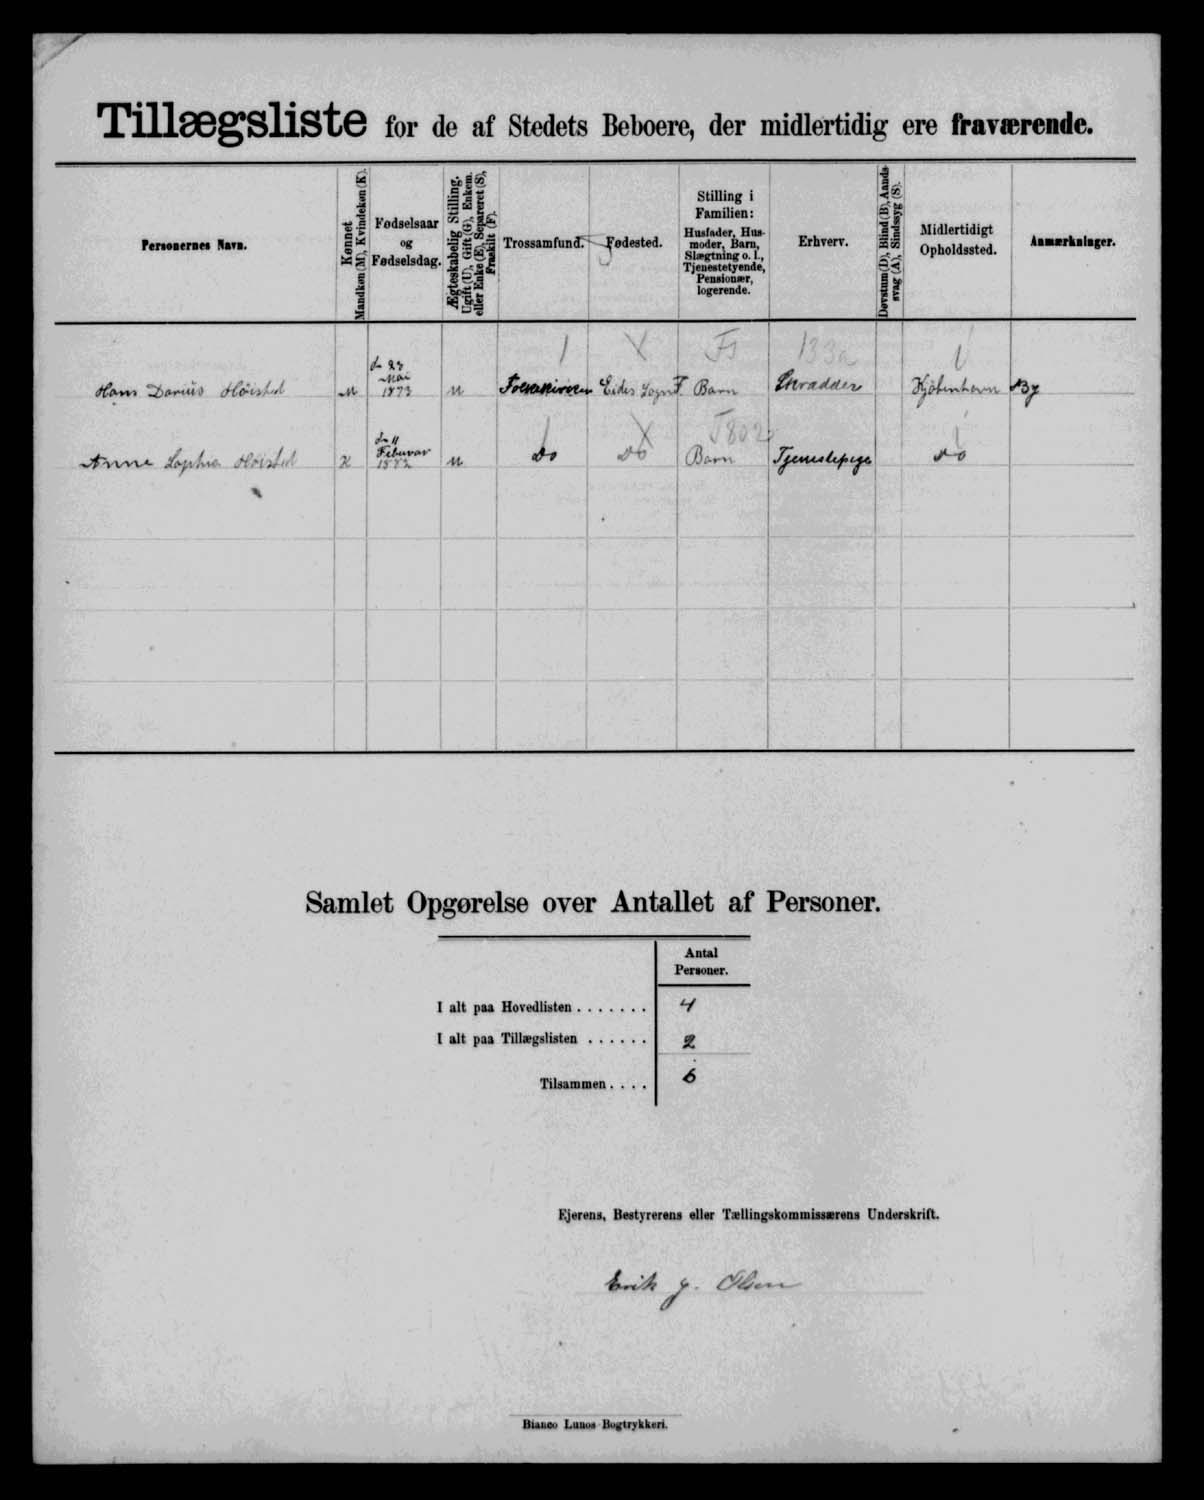 Tillægsliste for de af Stedets Beboere, der midlertidig ere fraværende.
Personernes Navn.
Kønnet
Mandkøn (M), Kvindekøn (K).
Fødselsaar
og
Fødselsdag.
Ægteskabelig Stilling.
Ugift (U), Gift (G), Enkem.
eller Enke (E), Separeret (S),
Fraskilt (F).
Trossamfund.
Fødested.
Stilling i
Familien:
Husfader, Hus-
moder, Barn,
Slægtning o. l.,
Tjenestetyende,
Pensionær,
logerende.
Erhverv.
Døvstum (D), Blind (B), Aands-
svag (A), Sindssyg (S).
Midlertidigt
Opholdssted.
Anmærkninger.
Hans Darius Höisted M d. 23 Mai 1873 U Folkekirken Eides Sogn F. Barn Skrædder Kjöbenhavn
Anne Sophia Höisted K d. 11 Februar U Do Do Barn Tjenestepige Do
Samlet Opgørelse over Antallet af Personer.
Antal
Personer.
I alt paa Hovedlisten . . . . . . . 4
I alt paa Tillægslisten . . . . . . 2
Tilsammen . . . . 6
Ejerens, Bestyrerens eller Tællingskommissærens Underskrift.
Erik J. Olsen
Bianco Lunos Bogtrykkeri.